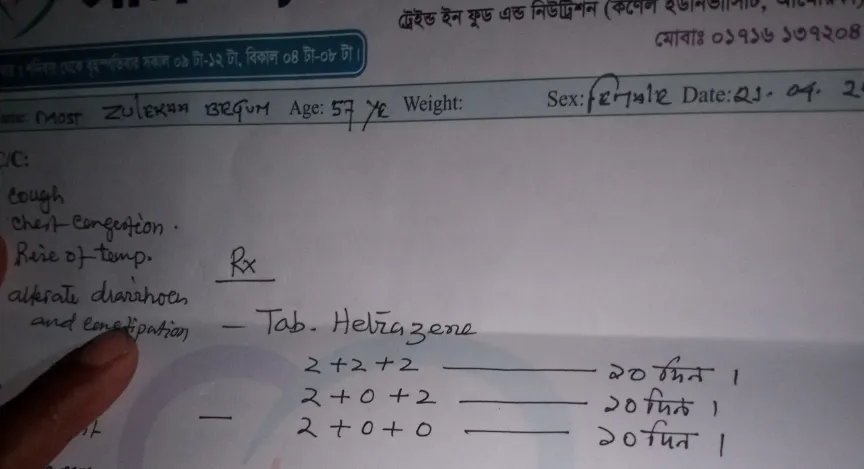 ট্রেইন্ড ইন ফুড এন্ড নিউট্রিশন
মোবাঃ ০১৭১৬ ১৩৭২০৪
শনিবার থেকে বৃহস্পতিবার সকাল ০৯ টা-১২ টা, বিকাল ০৪ টা-০৮ টা।
MOST ZULEKHA BEGUM Age: 57 Ye Weight: Sex: Female Date: 21. 09. 2
C/C:
Cough
Chest Congestion.
Rise of temp.
Rx
alterate diarrhoea
and constipation
– Tab. Hetrazene
2+2+2 — ২০ দিন।
2+0+2 — ১০ দিন।
– 2+0+0 — ১০ দিন।